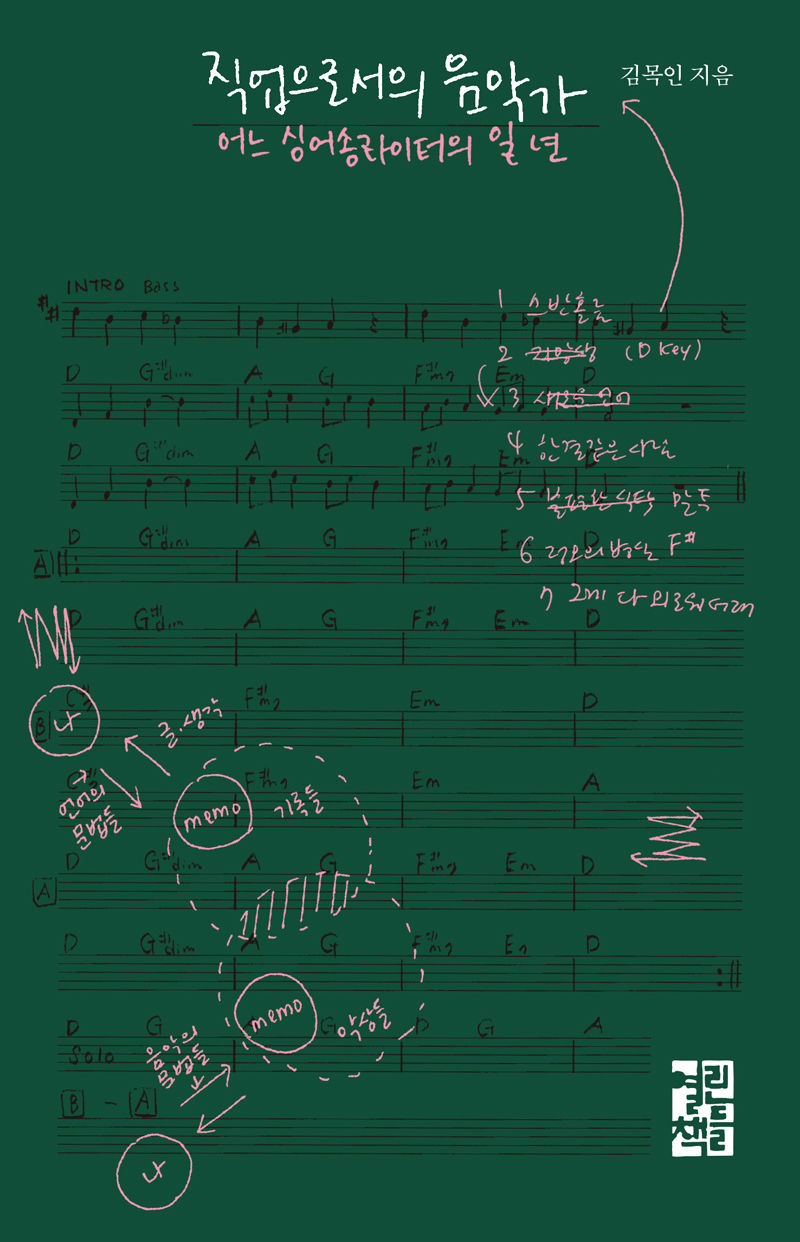 직업으로서의 음악가
김목인 지음
어느 싱어송라이터의 일 년
INTRO Bass
1 스반홀름
2 (D Key)
D G#dim A G F#m7 Em D
3 새로운 언어
D G#dim A G F#m7 Em D
4 한결같은 사람
5 불편한 식탁 말뚝
A D G#dim A G F#m7 Em D
6 F#
7 그게 다 외로워서래
D G#dim A G F#m7 Em D
C#7 F#m7 Em D
B 나
글·생각
C#7 F#m7 Em A
언어의
문법들
memo 기록들
D G#dim A G F#m7 Em D
A
D G#dim A G F#m7 E7 D
memo 악상들
D G A G D G A
Solo
음악의
문법들
B - A
나
열린책들